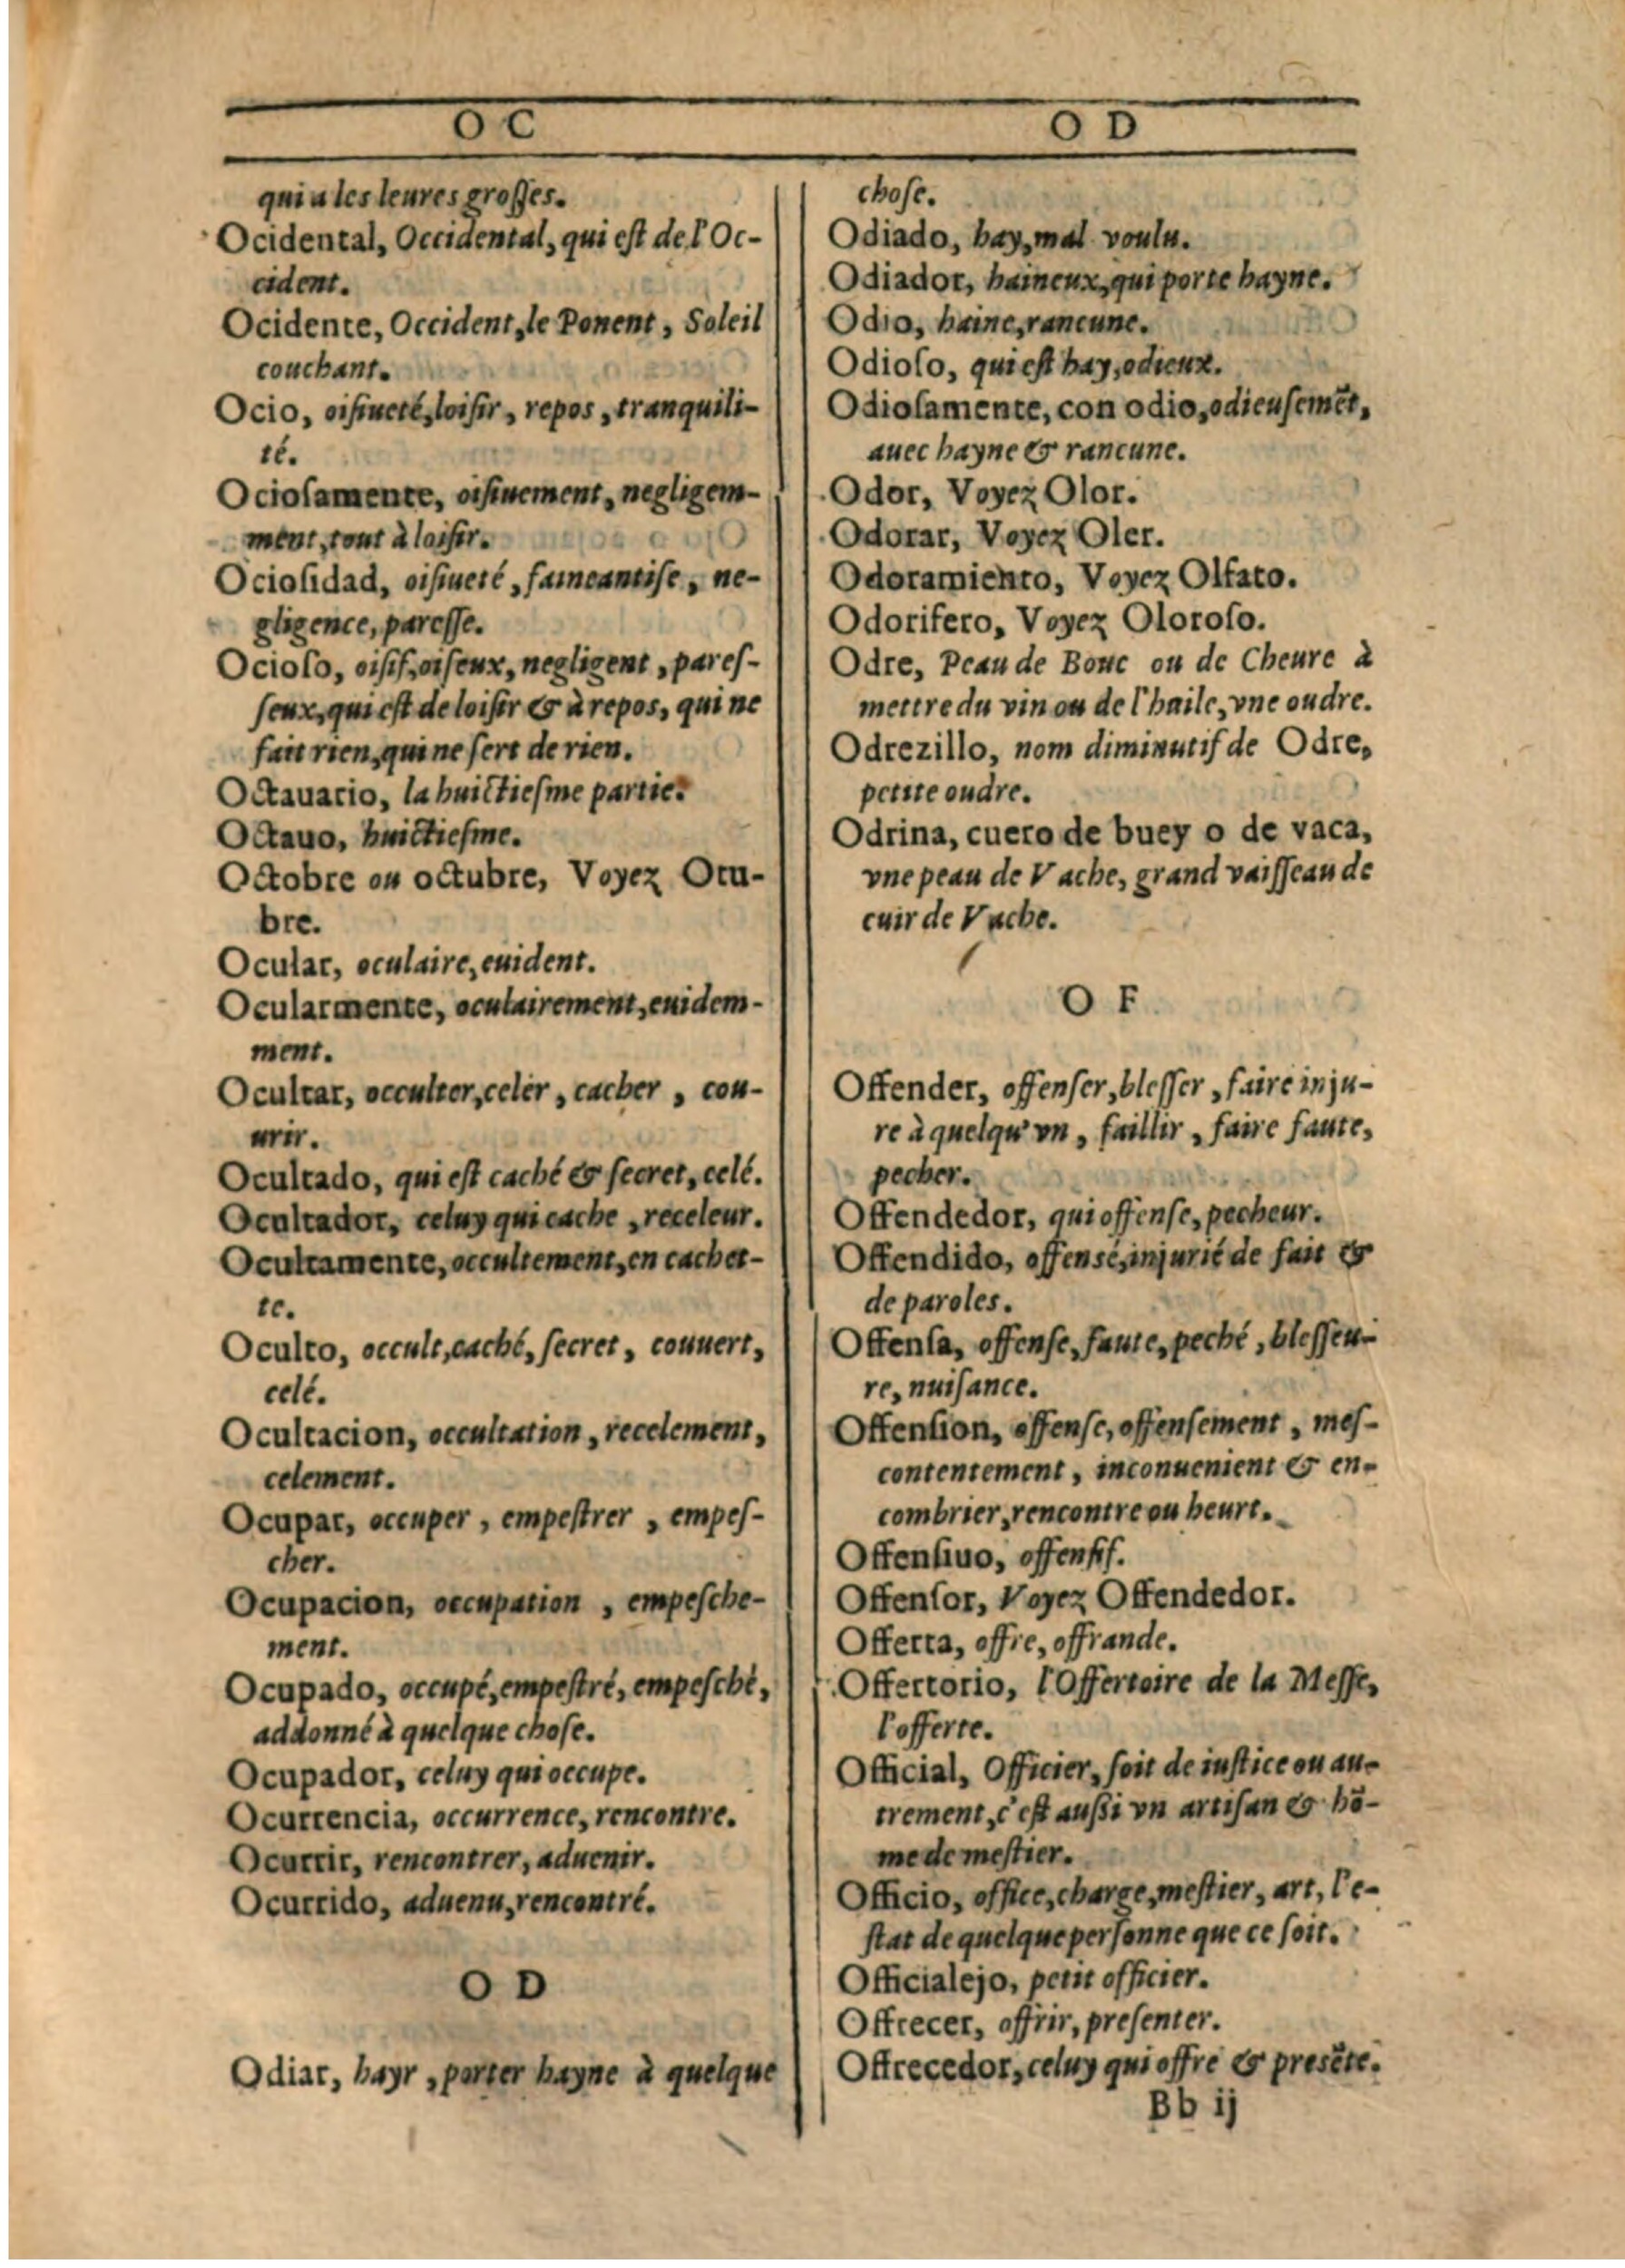 O C
qui a les leures grosses.
Ocidental, Occidental, qui est de l'Oc-
cident.
Ocidente, Occident, le Ponent, Soleil
couchant.
Ocio, oisiueté, loisir, repos, tranquili-
té.
Ociosamente, oisiuement, negligem-
ment, tout à loisir.
Ociosidad, oisiueté, faineantise, ne-
gligence, paresse.
Ocioso, oisif, oiseux, negligent, pares-
seux, qui est de loisir & à repos, qui ne
fait rien, qui ne sert de rien.
Octauario, la huictiesme partie.
Octauo, huictiesme.
Octobre ou octubre, Voyez Otu-
bre.
Ocular, oculaire, euident.
Ocularmente, oculairement, euidem-
ment.
Ocultar, occulter, celer, cacher, cou-
urir.
Ocultado, qui est caché & secret, celé.
Ocultador, celuy qui cache, receleur.
Ocultamente, occultement, en cachet-
te.
Oculto, occult, caché, secret, couuert,
celé.
Ocultacion, occultation, recelement,
celement.
Ocupar, occuper, empestrer, empes-
cher.
Ocupacion, occupation, empesche-
ment.
Ocupado, occupé, empestré, empesché,
addonné à quelque chose.
Ocupador, celuy qui occupe.
Ocurrencia, occurrence, rencontre.
Ocurrir, rencontrer, aduenir.
Ocurrido, aduenu, rencontré.
O D
Odiar, hayr, porter hayne à quelque
O D
chose.
Odiado, hay, mal voulu.
Odiador, haineux, qui porte hayne.
Odio, haine, rancune.
Odioso, qui est hay, odieux.
Odiosamente, con odio, odieusemẽt,
auec hayne & rancune.
Odor, Voyez Olor.
Odorar, Voyez Oler.
Odoramiento, Voyez Olfato.
Odorifero, Voyez Oloroso.
Odre, Peau de Bouc ou de Cheure à
mettre du vin ou de l'haile, vne oudre.
Odrezillo, nom diminutif de Odre,
petite oudre.
Odrina, cuero de buey o de vaca,
vne peau de Vache, grand vaisseau de
cuir de Vache.
O F
Offender, offenser, blesser, faire inju-
re à quelqu'vn, faillir, faire faute,
pecher.
Offendedor, qui offense, pecheur.
Offendido, offensé, injurié de fait &
de paroles.
Offensa, offense, faute, peché, blesseu-
re, nuisance.
Offension, offense, offensement, mes-
contentement, inconuenient & en-
combrier, rencontre ou heurt.
Offensiuo, offensif.
Offensor, Voyez Offendedor.
Offerta, offre, offrande.
Offertorio, l'Offertoire de la Messe,
l'offerte.
Official, Officier, soit de iustice ou au-
trement, c'est aussi vn artisan & hõ-
me de mestier.
Officio, office, charge, mestier, art, l'e-
stat de quelque personne que ce soit.
Officialejo, petit officier.
Offrecer, offrir, presenter.
Offrecedor, celuy qui offre & presẽte.
Bb ij